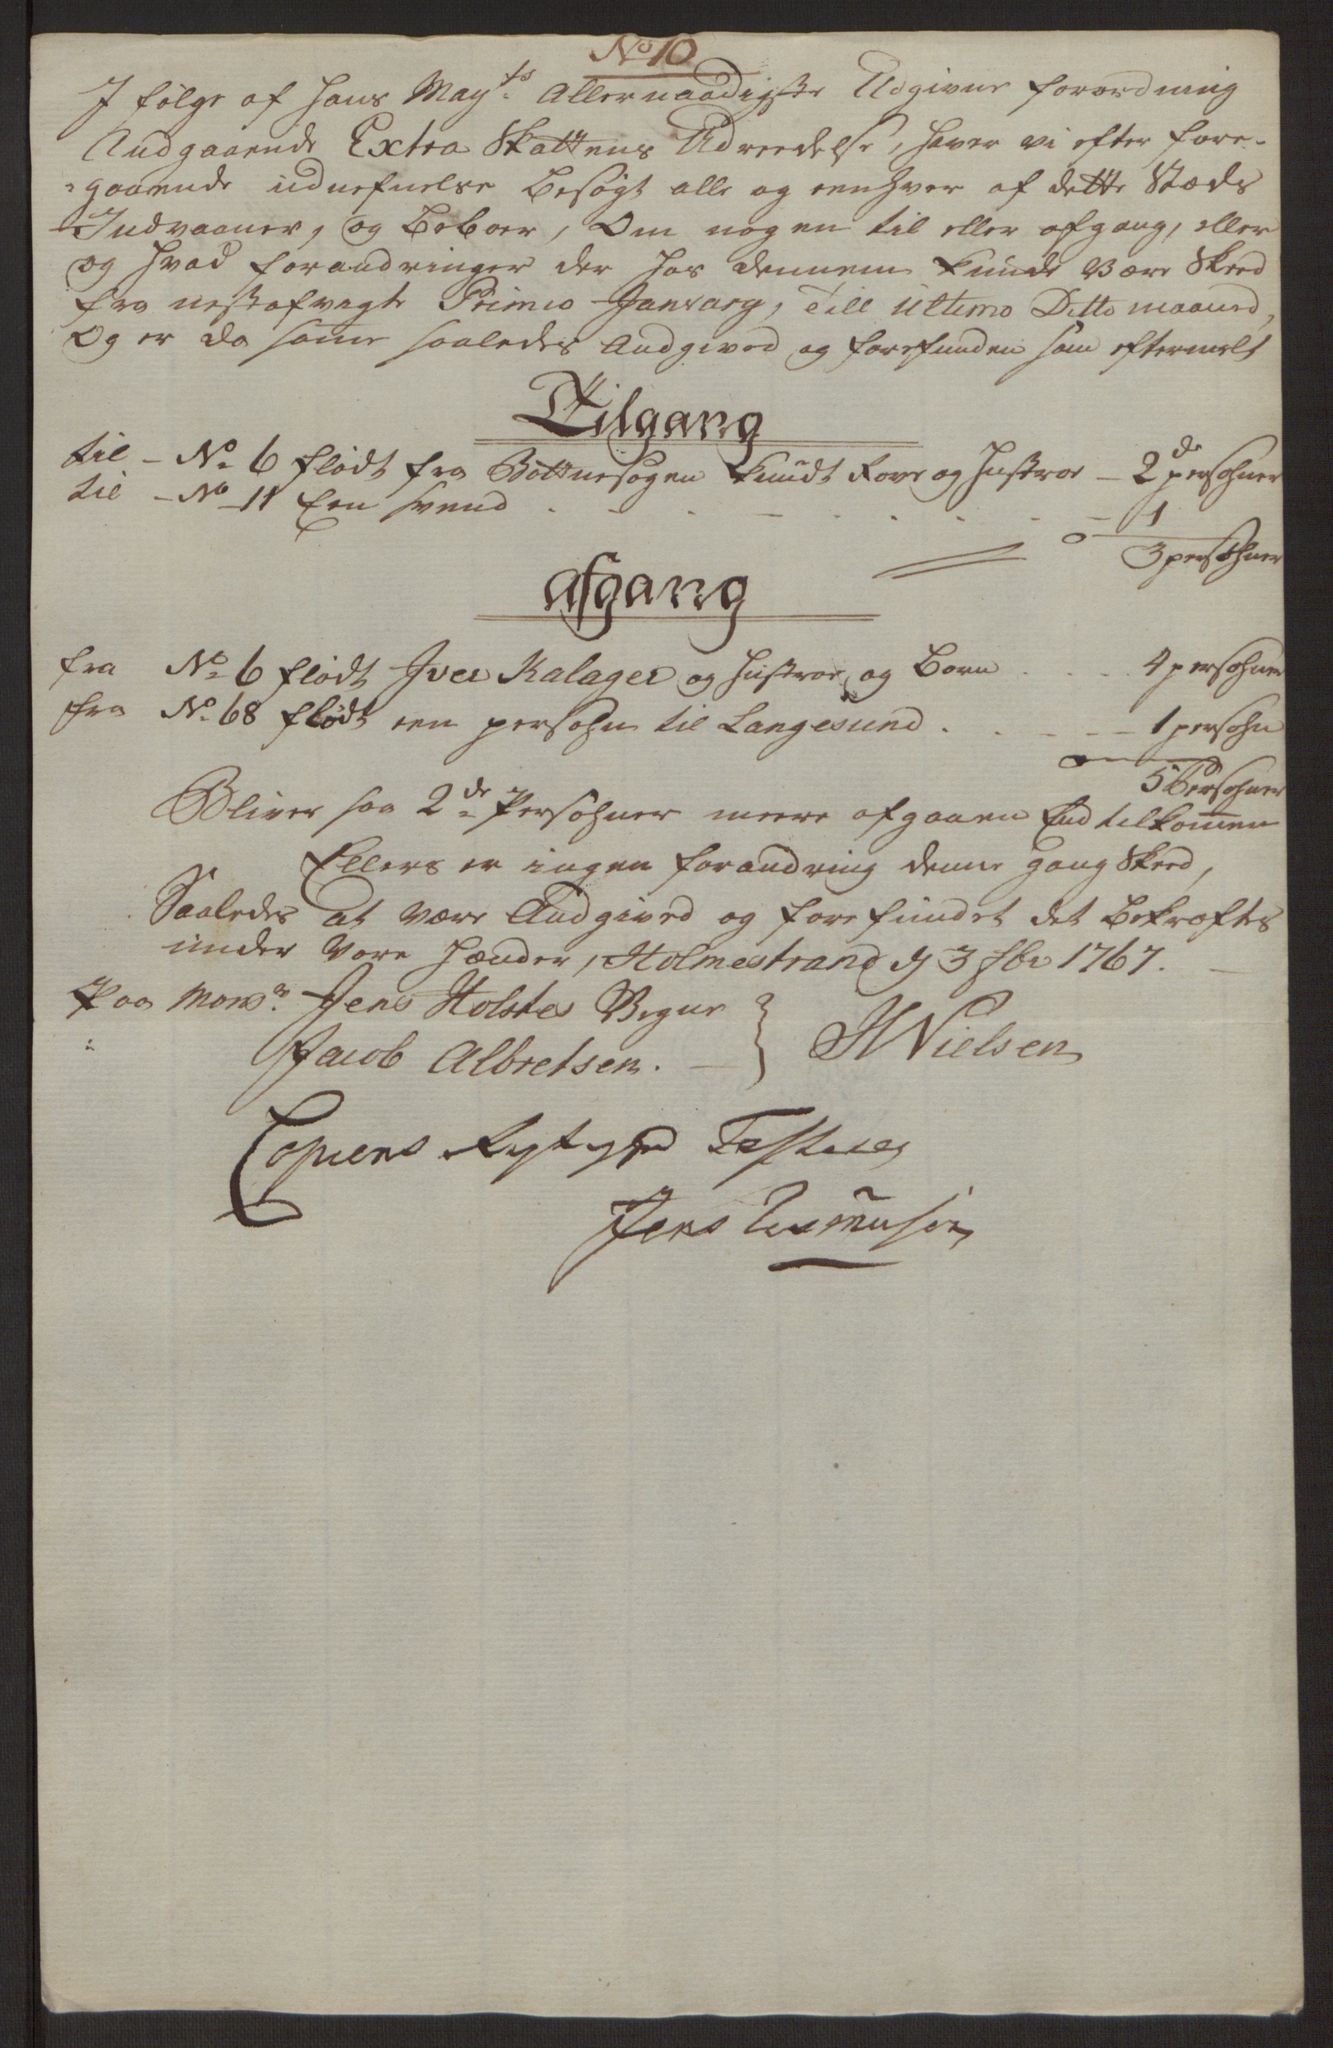 No 10
I følge af Hans Mayts Allernaadigste Udgivne forordning
Andgaaende Extra Skattens Udreedelse, haver vi efter fore-
-gaaende udnefnelse besøgt alle og eenhver af dette Stæds
Indvaaner, og beboer, Om nogen til eller afgang, eller
og hvad forandringer der hos dennem kunde være Skeed
fra nestafvigte Primo January, Till ultimo Ditto maaned,
Og er da same saaledes Andgived og forefunden som eftermelt
Tilgang
til - No 6 flødt fra Bottnesogen Knudt Rove og Hustroe - 2de persohner
til - No 11 Een svend - 1
3 persohner
afgang
fra No 6 flødt Iver Kalager og Hustroe og Born 4 persohner
fra No 68 flødt een persohn til Langesund - 1 persohn
5 Persohner
Bliver saa 2de Persohner meere afgaaen End tilkomen
Ellers er ingen forandring denne gang Skeed,
Saaledes at være Andgived og forefundet det bekræftes
under Vore Hænder, Holmestrand d 3 fbr 1767.
Paa Monsr Jens Holstes Vegne
Jacob Albretsen. - HNielsen
Copiens Rigtighed Testerer
Jens Rasmusen